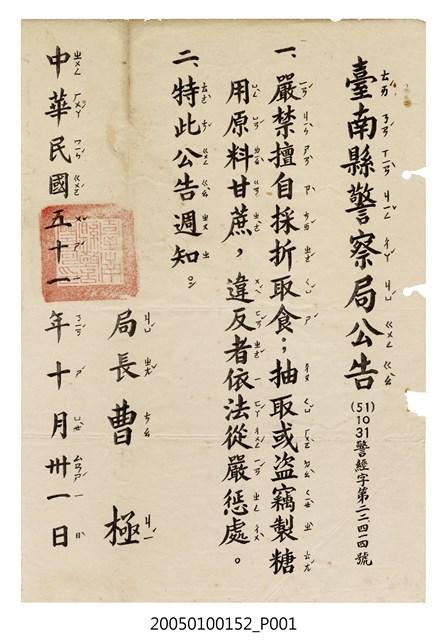 臺南縣警察局公告
(51)1031警經字第二三四一四號
一、嚴禁擅自採折取食；抽取或盜竊製糖
用原料甘蔗，違反者依法從嚴懲處。
二、特此公告週知。
局長曹極
中華民國五十一年十月卅一日
20050100152_P001